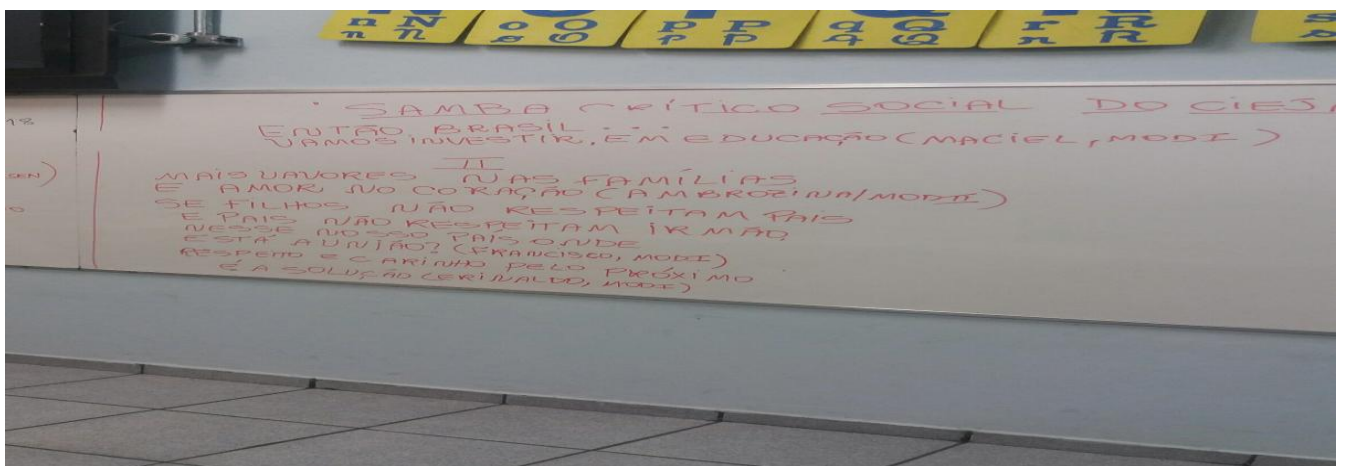 n N o O p P q Q r R s
n N o O p P q Q r R s
18
SEN)
· SAMBA CRÍTICO SOCIAL DO CIEJA
ENTÃO BRASIL...
VAMOS INVESTIR, EM EDUCAÇÃO (MACIEL, MOD I)
II
MAIS VAVORES NAS FAMÍLIAS
E AMOR NO CORAÇÃO (AMBROZINA/MOD II)
SE FILHOS NÃO RESPEITAM PAIS
E PAIS NÃO RESPEITAM IRMÃO
NESSE NOSSO PAÍS ONDE
ESTÁ A UNIÃO? (FRANCISCO, MOD I)
RESPEITO E CARINHO PELO PRÓXIMO
É A SOLUÇÃO (ERINALDO, MOD I)